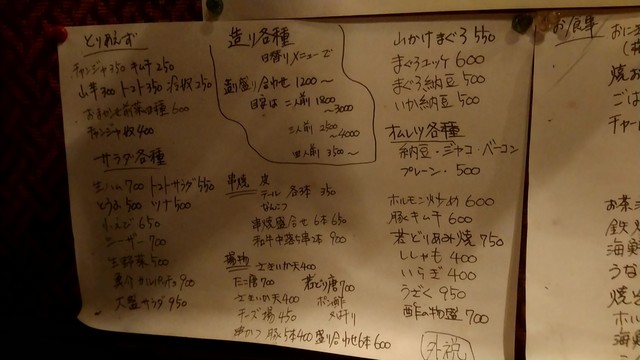 とりあえず
チャンジャ350 キムチ250
山芋300 トマト350 冷奴250
おまかせ前菜四種600
チャンジャ奴400
サラダ各種
生ハム700 トマトサラダ550
とうふ500 ツナ500
小えび650
シーザー700
生野菜500
カルパッチョ900
大盛サラダ950
造り各種
日替りメニューで
造り盛り合わせ1200〜
目安は二人前1800
〜3000
三人前2500
〜4000
四人前3500〜
串焼 皮
テール 各3本 350
なんこつ
串焼盛合せ6本650
和牛中落ち串2本900
揚物 さきいか天400
たこ唐700 若どり唐700
さきいか天400 ポン酢
チーズ揚450
串かつ 豚5本400 盛り合わせ6本600
山かけまぐろ550
まぐろユッケ600
まぐろ納豆500
いか納豆500
オムレツ各種
納豆・ジャコ・ベーコン
プレーン・500
ホルモン炒め600
豚キムチ600
若どりあみ焼750
ししゃも400
いらぎ400
うざく950
酢の物盛700
外税
お食事
おに
焼お
ごは
チャー
お茶
鉄火
海鮮
うな
焼そ
ホル
海鮮